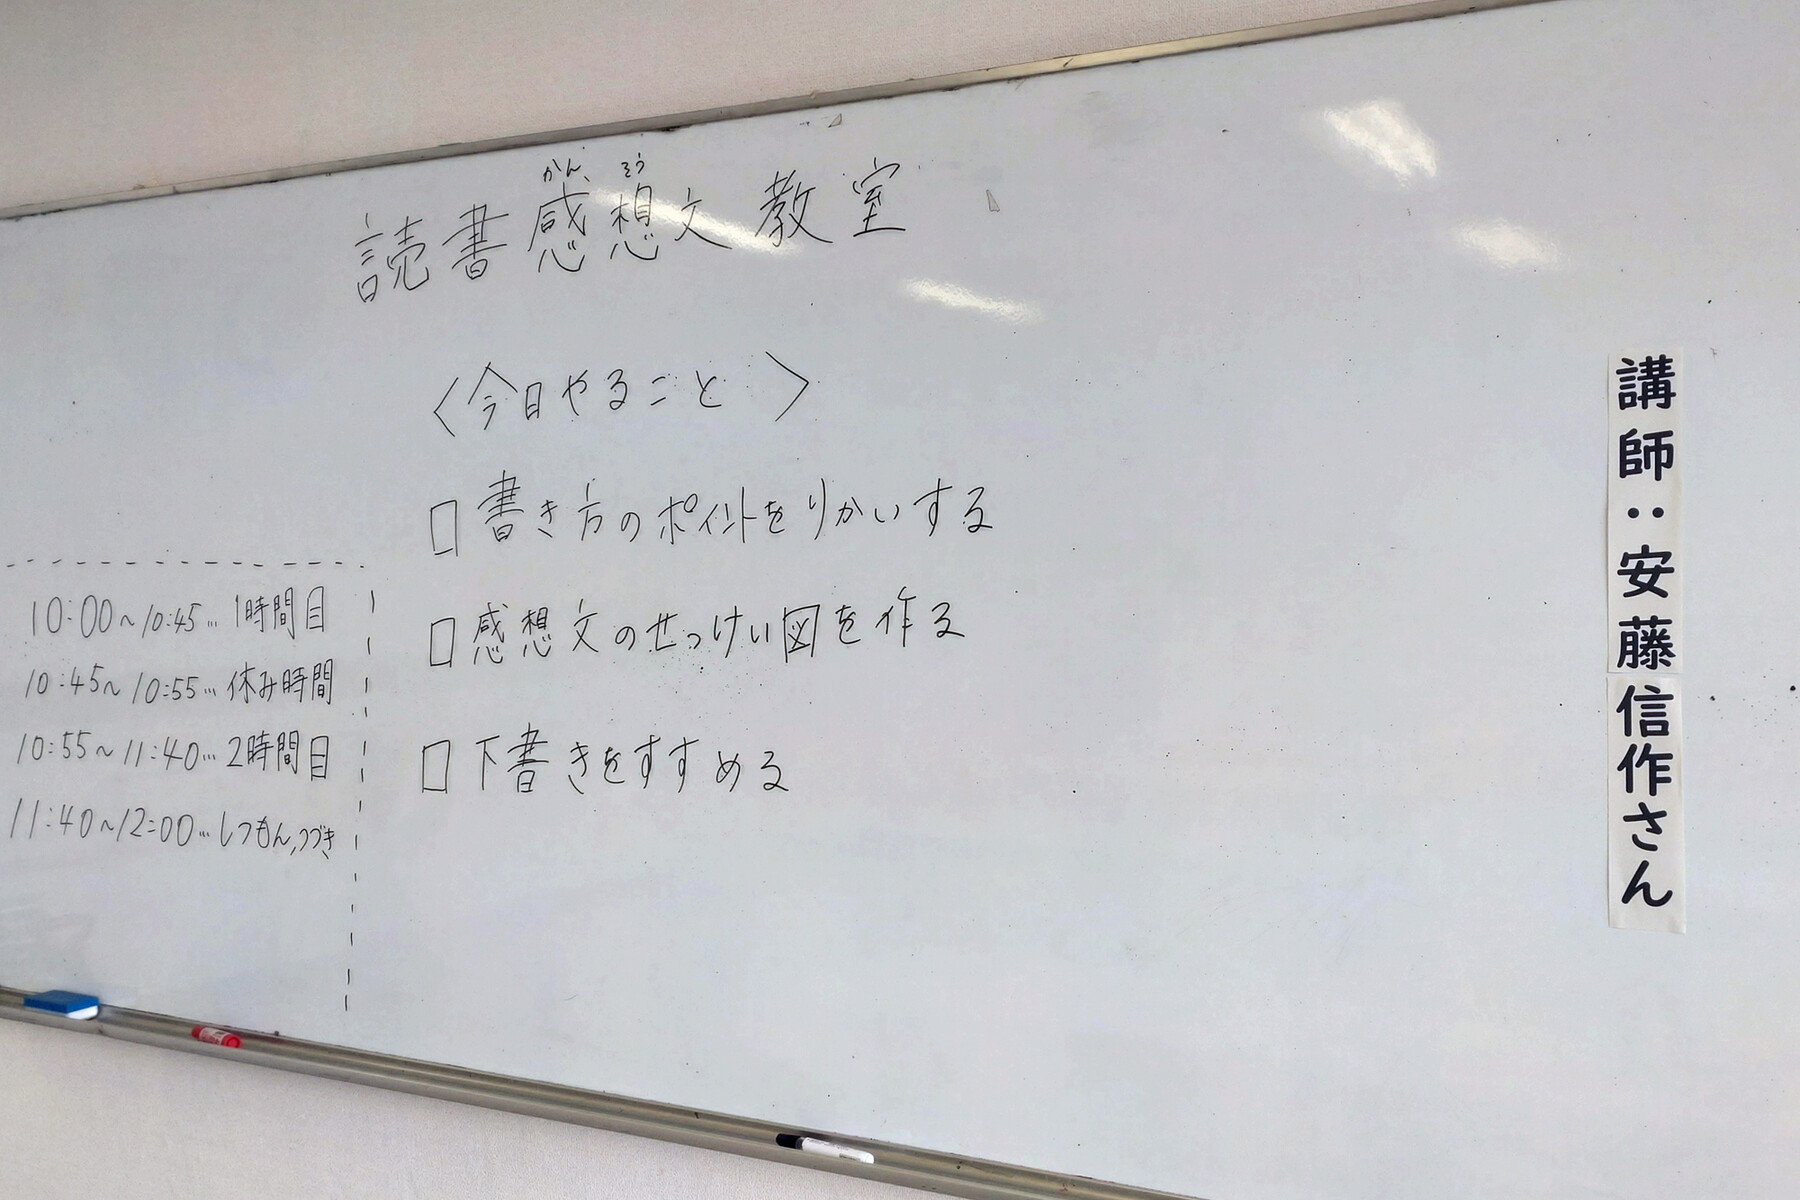 かんそう
読書感想文教室
〈今日やること〉
□書き方のポイントをりかいする
□感想文のせっけい図を作る
□下書きをすすめる
10:00~10:45…1時間目
10:45~10:55…休み時間
10:55~11:40…2時間目
11:40~12:00…しつもん,つづき
講師:安藤信作さん